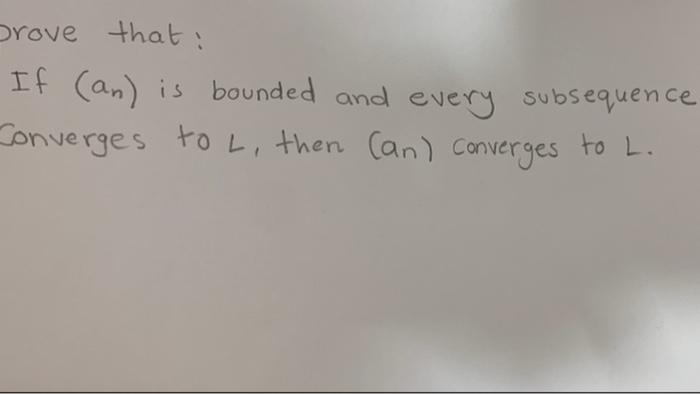 prove that:
If (an) is bounded and every subsequence
Converges to L, then (an) converges to L.